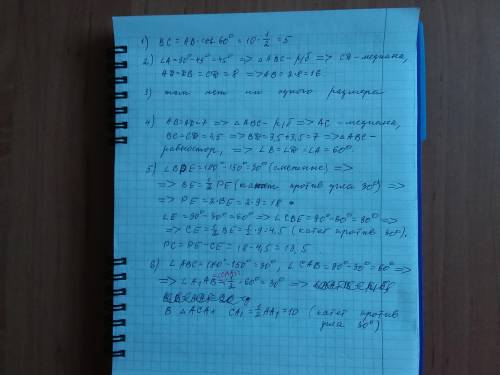 1) BC = AB·cos 60° = 10·1/2 = 5
2) ∠A = 90°-45° = 45° => △ABC - р/б => CD - медиана,
AD = DB = CD = 8 => AB = 2·8 = 16.
3) там нет ни одного размера
4) AB = AD = 7 => △ABC - р/б => AC - медиана,
BC = CD = 3,5 => BD = 3,5+3,5 = 7 => △ABC -
равностор, => ∠B = ∠D = ∠A = 60°.
5) ∠BPE = 180°-150° = 30° (смежные) =>
=> BE = 1/2 PE (катет против угла 30°) =>
=> PE = 2·BE = 2·9 = 18.
∠E = 90°-30° = 60° => ∠CBE = 90°-60° = 30° =>
=> CE = 1/2 BE = 1/2·9 = 4,5 (катет против 30°).
PC = PE - CE = 18 - 4,5 = 13,5
6) ∠ABC = 180°-150° = 30°, ∠CAB = 90°-30° = 60° =>
=> ∠A₁AB = 1/2·60° = 30° =>
В △ACA₁ CA₁ = 1/2 AA₁ = 10 (катет против
угла 30°)